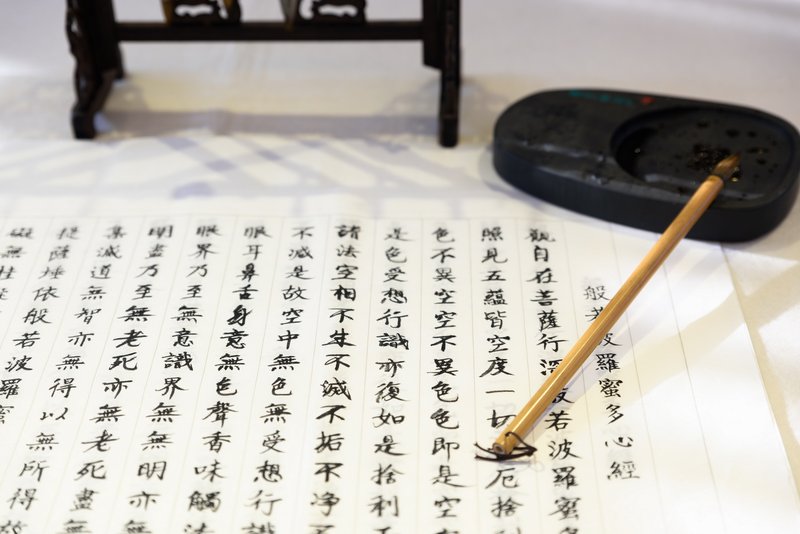 般若波羅蜜多心經
觀自在菩薩行深般若波羅蜜多
照見五蘊皆空度一切厄捨利
色不異空空不異色色即是空
是色受想行識亦復如是捨利
諸法空相不生不滅不垢不净不
不滅是故空中無色無受想行識
眼耳鼻舌身意無色聲香味觸法
眼界乃至無意識界無無明亦無
明盡乃至無老死亦無老死盡無
集滅道無智亦無得以無所得故
提薩埵依般若波羅蜜
礙無